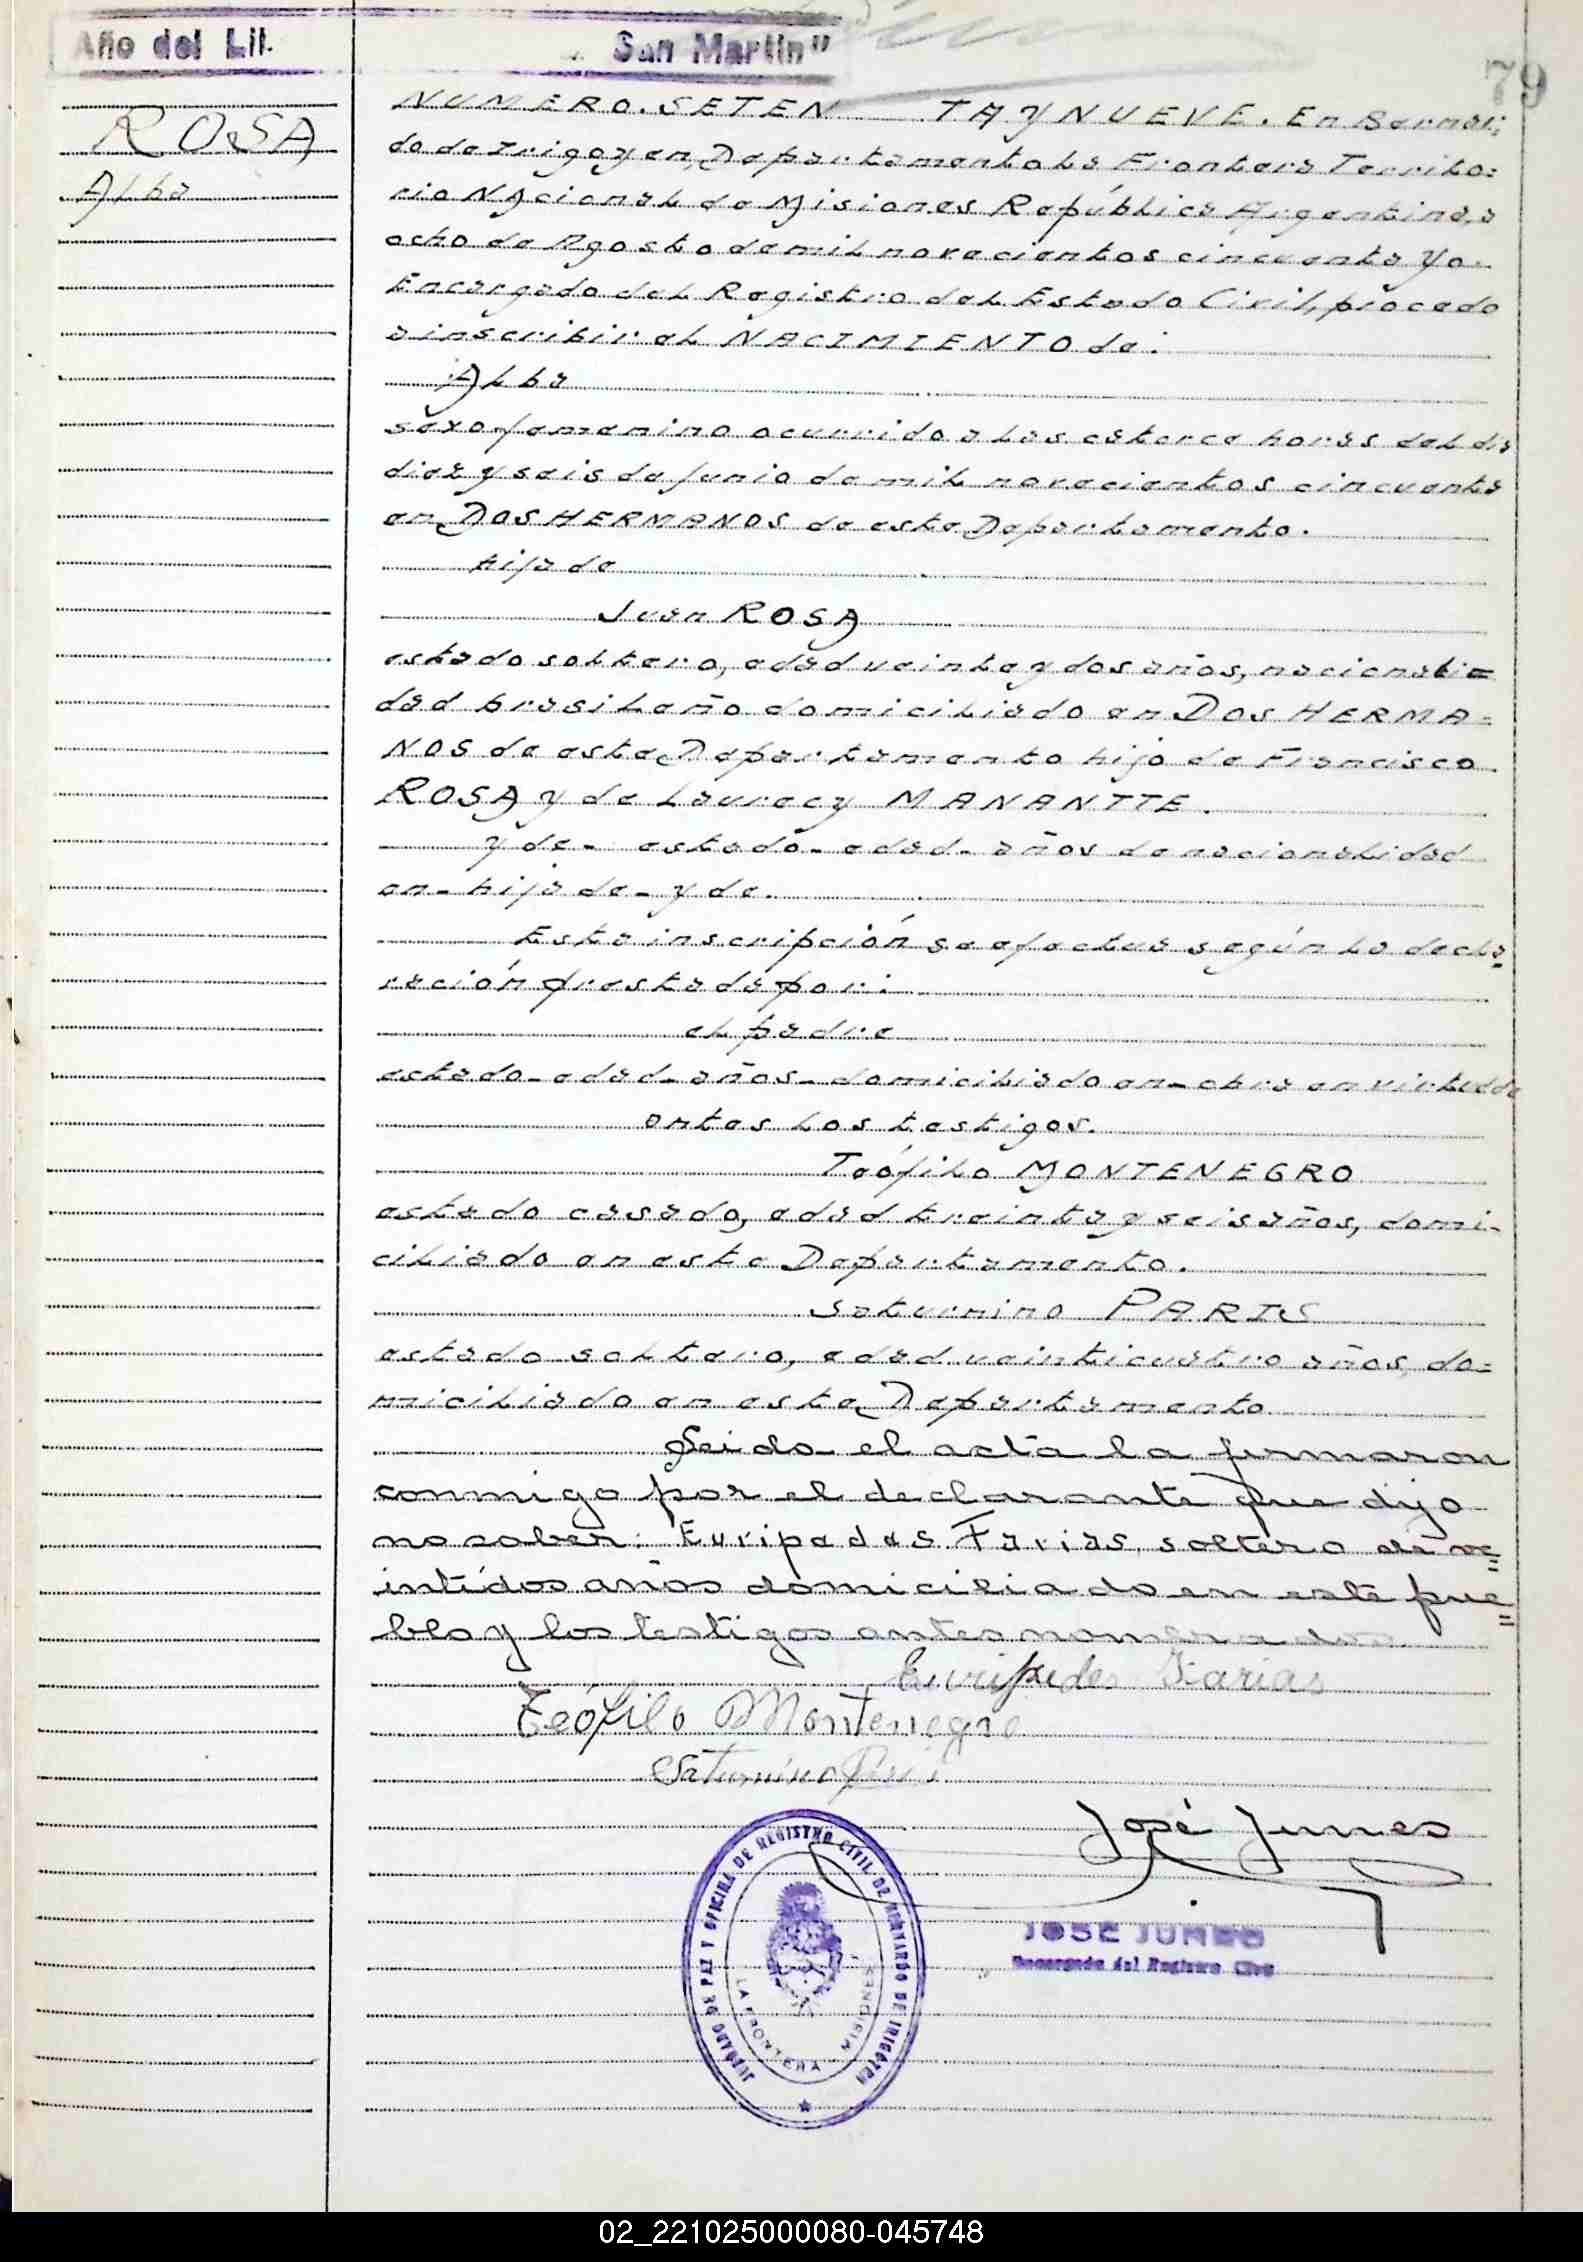 Año del Lit. San Martín"
79
ROSA
Alba
NUMERO. SETEN TA Y NUEVE. En Bernar;
do de Irigoyen, Departamento La Frontera Territo:
rio NAcional de Misiones República Argentina, a
ocho de Agosto de mil novecientos cincuenta Yo.
Encargado del Registro del Estado Civil, procedo
a inscribir el NACIMIENTO de:
Alba
sexo femenino ocurrido a las catorce horas del dia
diez y seis de junio de mil novecientos cincuenta
en DOS HERMANOS de este Departamento.
hija de
Juan ROSA
estado soltero, edad veinte y dos años, nacionali=
dad brasileño domiciliado en DOS HERMA=
NOS de este Departamento hijo de Francisco
ROSA y de Laurecy MANANTTE.
y de - estado - edad - años de nacionalidad
en - hija de - y de.
Esta inscripción se efectua según la decla-
ración prestada por:
el padre
estado - edad - años - domiciliado en - obra en virtud de
antes los testigos.
Teófilo MONTENEGRO
estado casado, edad treinta y seis años, domi-
ciliado en este Departamento.
Saturnino PARIS
estado soltero, edad veinticuatro años, do=
miciliado en este Departamento
Leido el acta la firmaron
conmigo por el declarante que dijo
no saber: Euripedes Farias, soltero de ve=
intidos años domiciliado en este pue=
blo y los testigos antes nomerados
Euripedes Farias
Teófilo Montenegro
Saturnino
José Junes
JUZGADO DE PAZ Y OFICINA DE REGISTRO CIVIL DE BERNARDO DE IRIGOYEN
LA FRONTERA MISIONES
JOSE JUNES
Encargado del Registro Civil
02_221025000080-045748